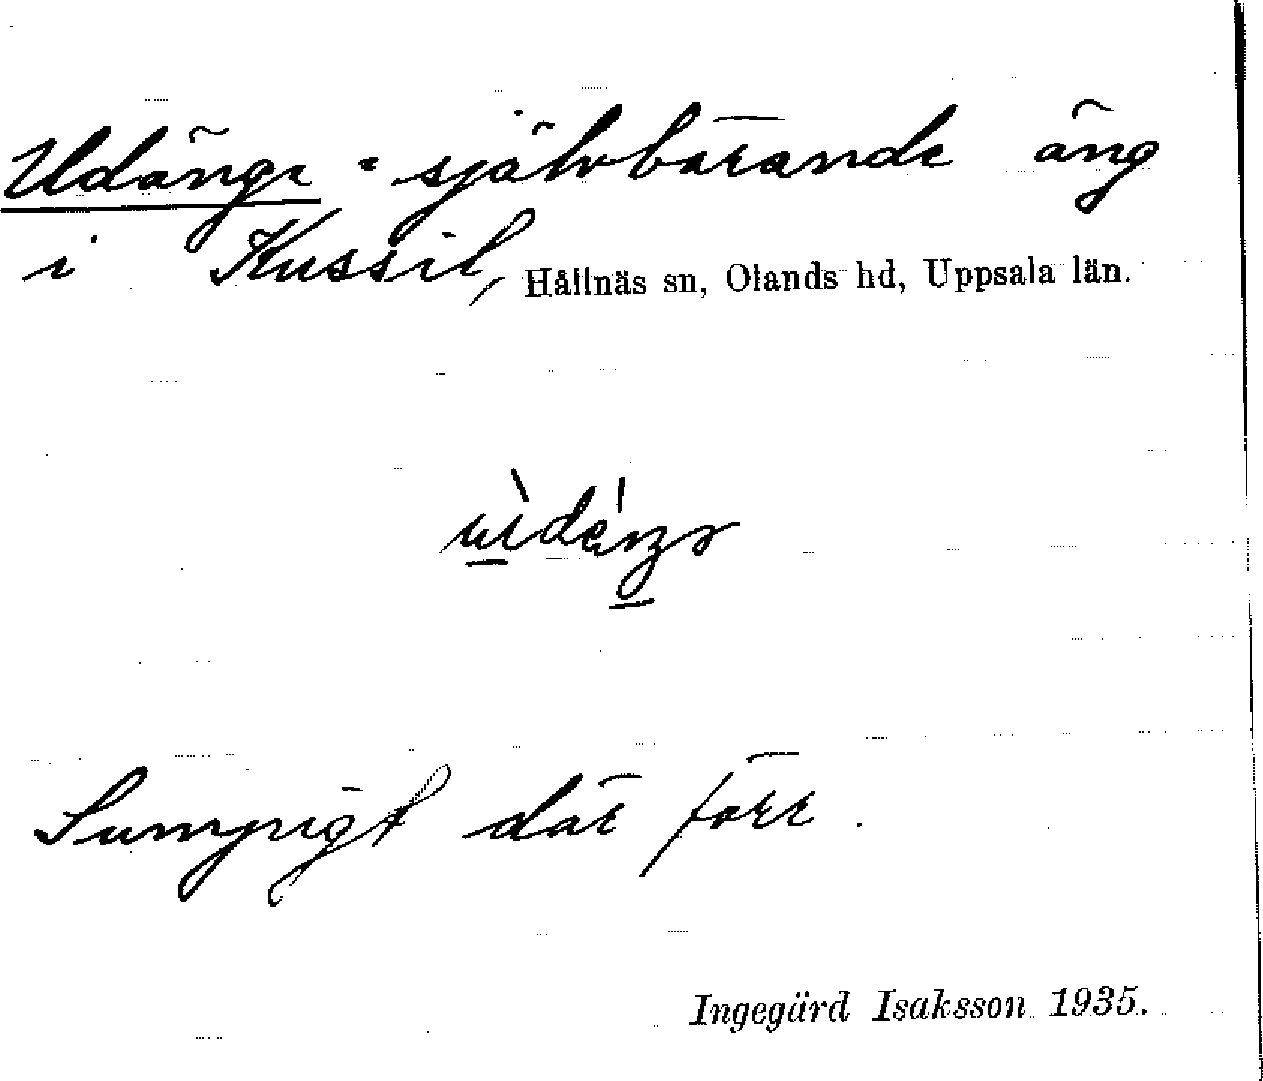 Udänge = självbärande äng
i Kussil, Hållnäs sn, Olands hd, Uppsala län.
Sumpigt där förr.
Ingegärd Isaksson 1935.